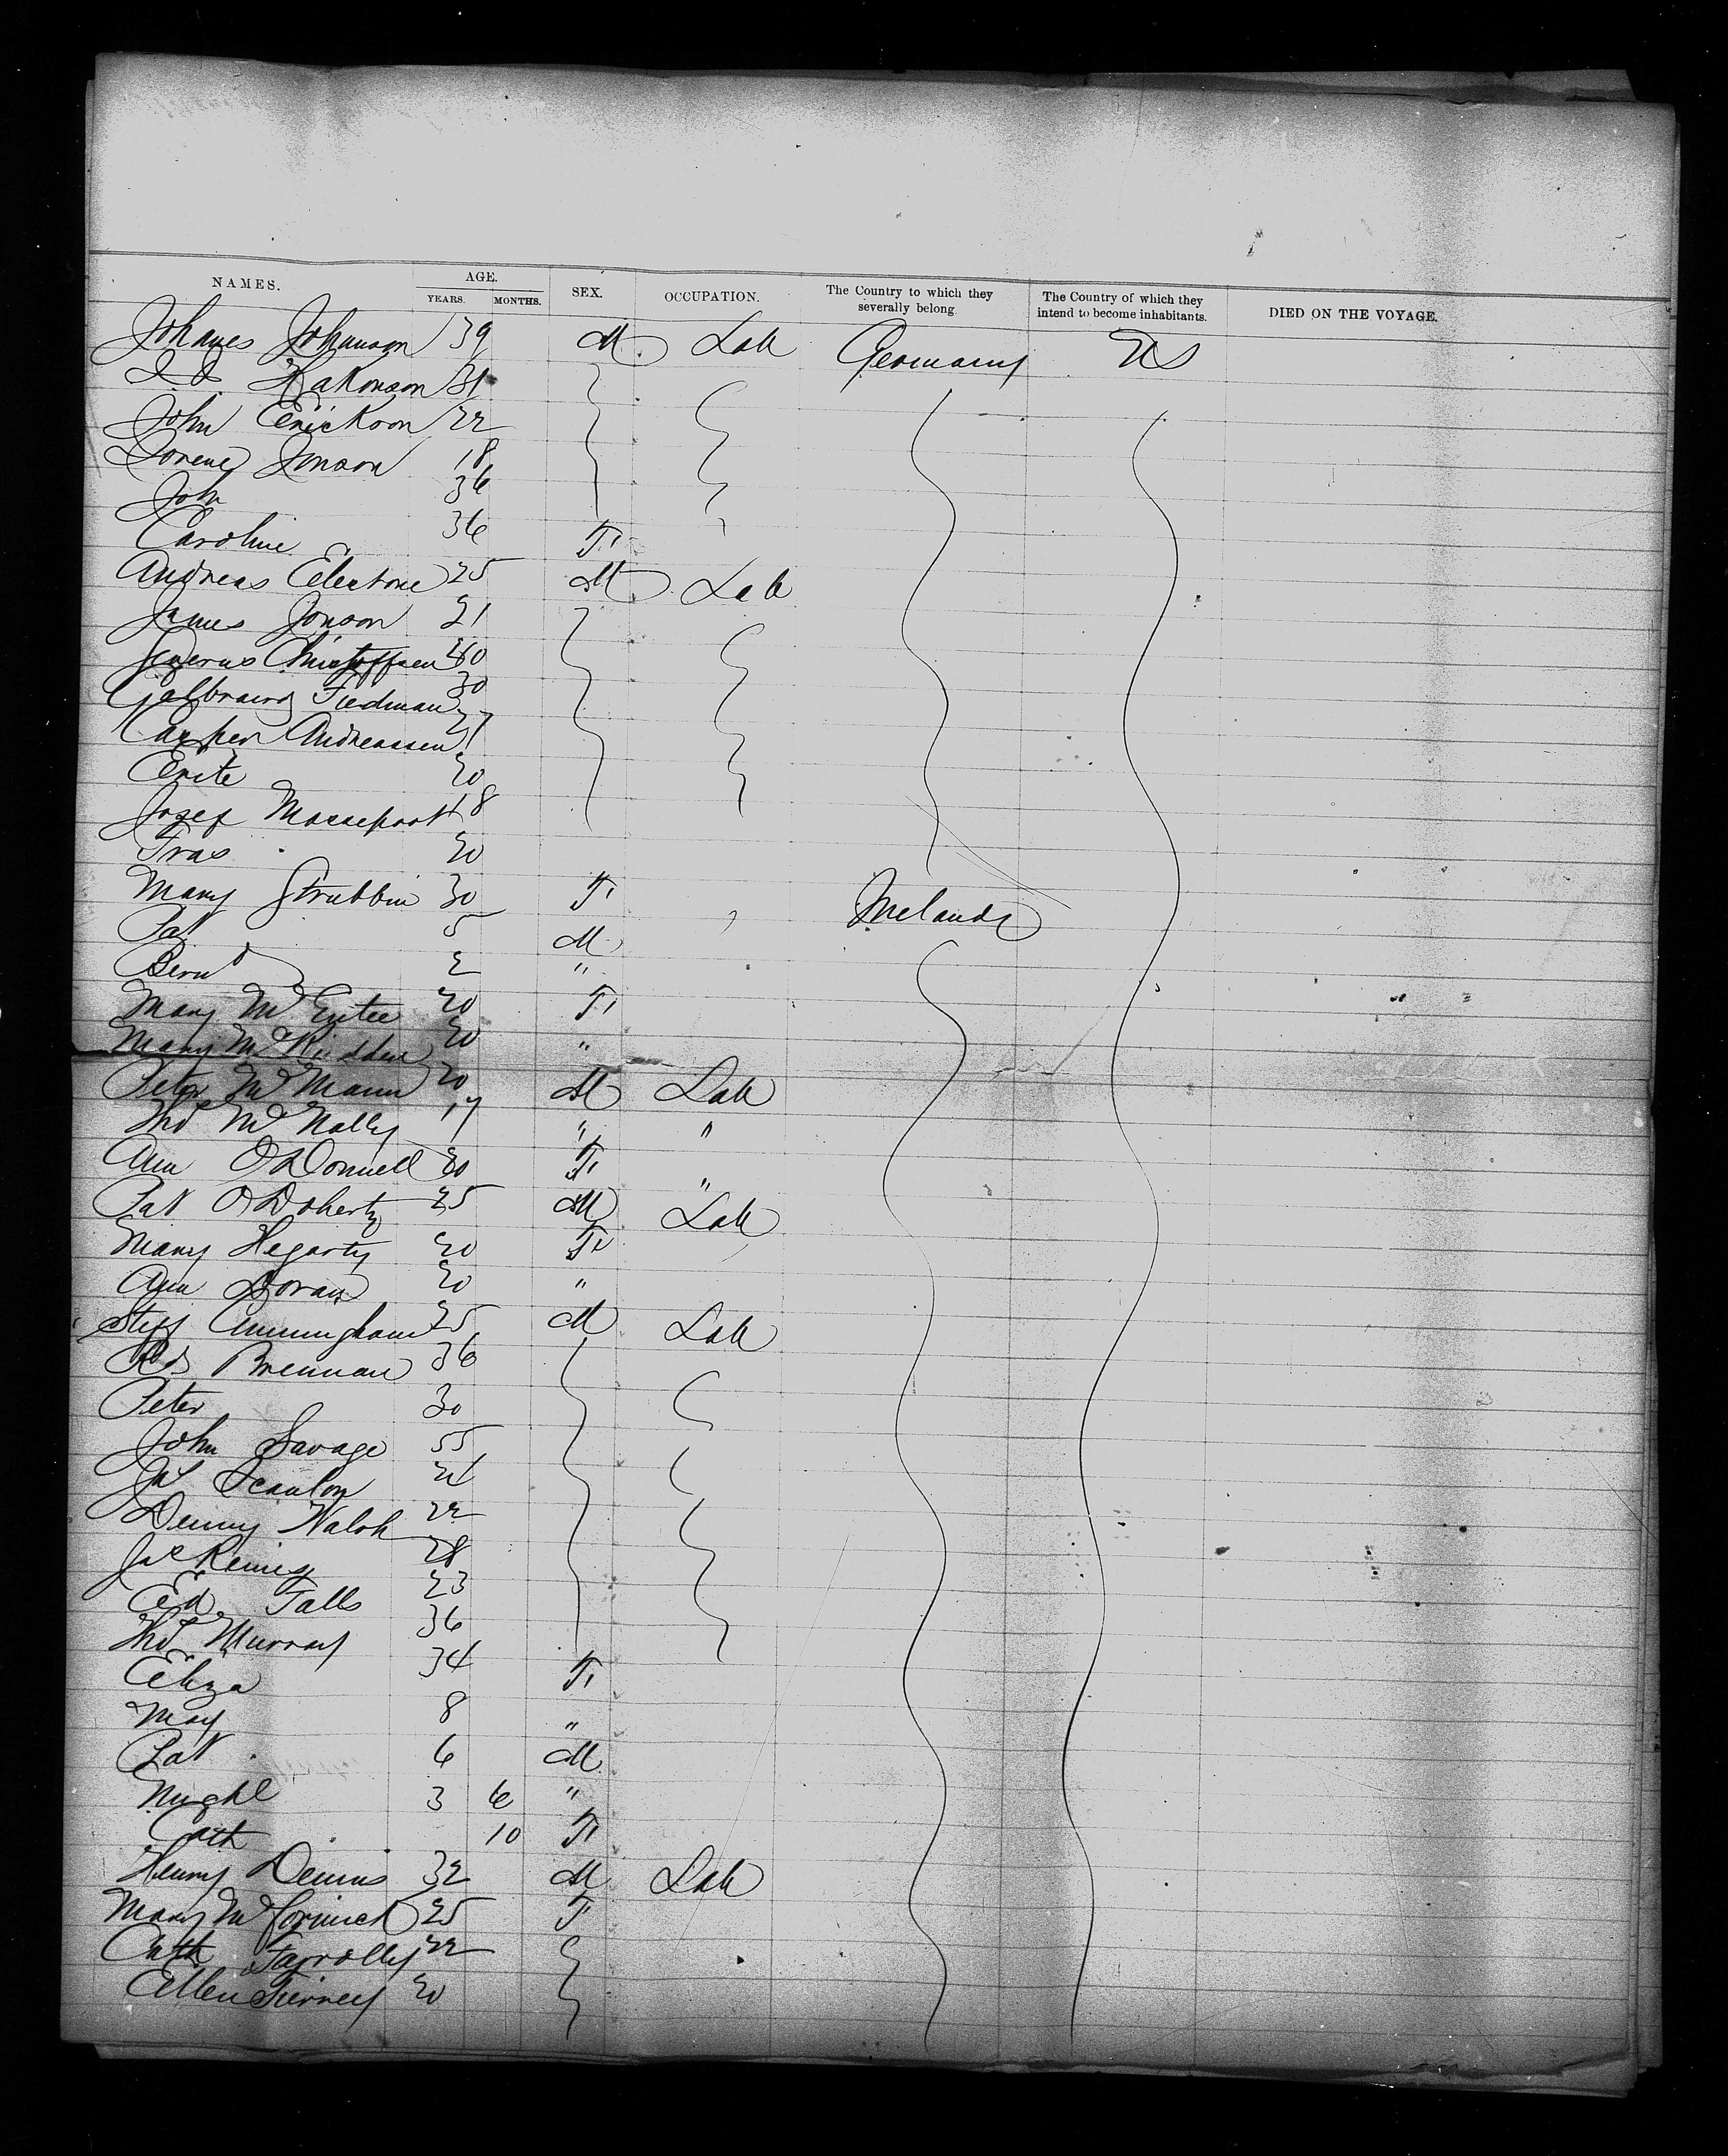 NAMES. AGE. YEARS. MONTHS. SEX. OCCUPATION. The Country to which they severally belong The Country of which they intend to become inhabitants. DIED ON THE VOYAGE.
Johanes Johanson 39 M Lab Germany US
Hakonson 31
John Erickson 22
Lorenz Jonson 18
John 36
Caroline 36 F
Andreas 25 M Lab
James Jonson 21
Christoffsen
Fiedman 30
Casper Andreassen
Erite 20
Josef 18
Fras 20
Mary Strubbin 30 F Irelands
Pat 5 M
Bernd 2 "
Mary McEntee 20 F
Mary 20 "
Peter McMann 20 M Lab
Thos McNally 17 " "
Ann O'Donnell 20 F "
Pat O'Doherty 25 M Lab
Mary Hegarty 20 F
Ann Doran 20 "
Cunningham 25 M Lab
Brennan 36
Peter 30
John Savage 55
Jas Scanlon
Denny Walsh 22
Jas 28
Ed Falls 23
Thos Murray 36
Eliza 34 F
May 8 "
Pat 6 M
Michl 3 6 "
Cath 10 F
Henry Dennis 32 M Lab
Mary McCormick 25 F
Cath Farrolly 22
Ellen Tierney 20